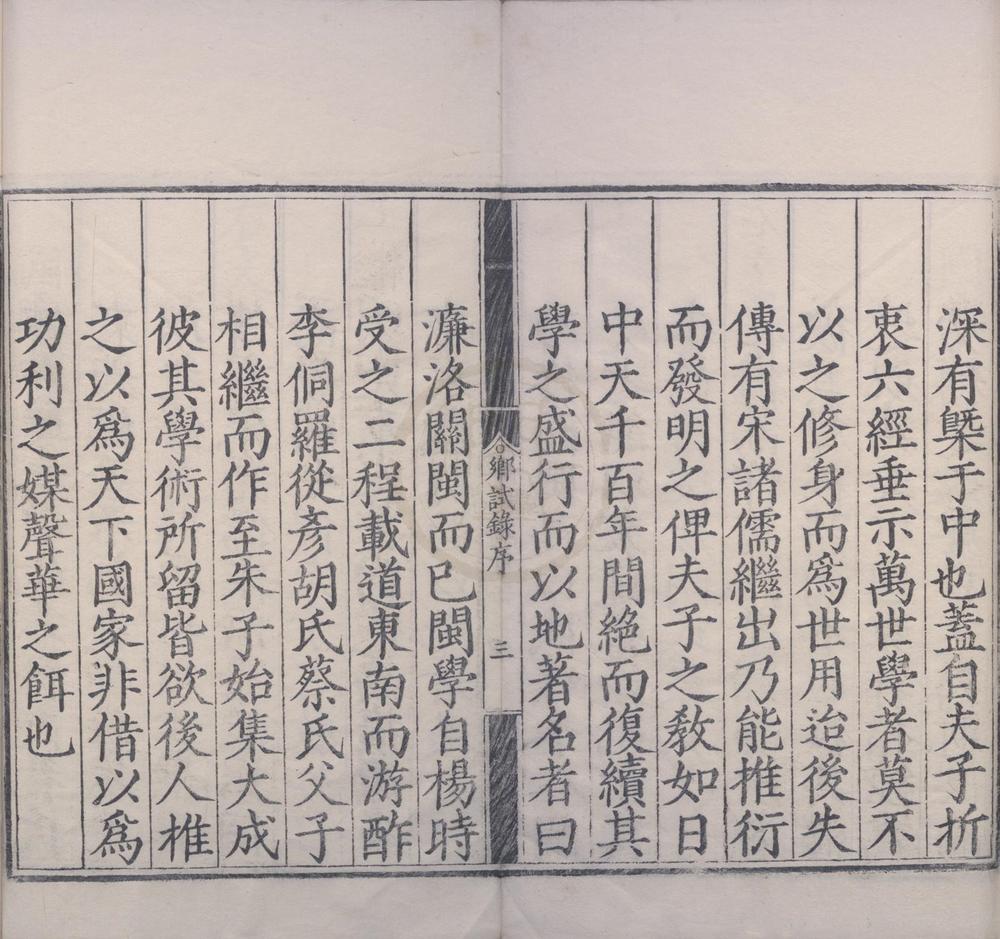 深有槩于中也蓋自夫子折
衷六經垂示萬世學者莫不
以之修身而爲世用迨後失
傳有宋諸儒繼出乃能推衍
而發明之俾夫子之敎如日
中天千百年間絶而復續其
學之盛行而以地著名者曰
鄉試錄序
三
濂洛關閩而已閩學自楊時
受之二程載道東南而游酢
李侗羅從彥胡氏蔡氏父子
相繼而作至朱子始集大成
彼其學術所留皆欲後人推
之以爲天下國家非借以爲
功利之媒聲華之餌也